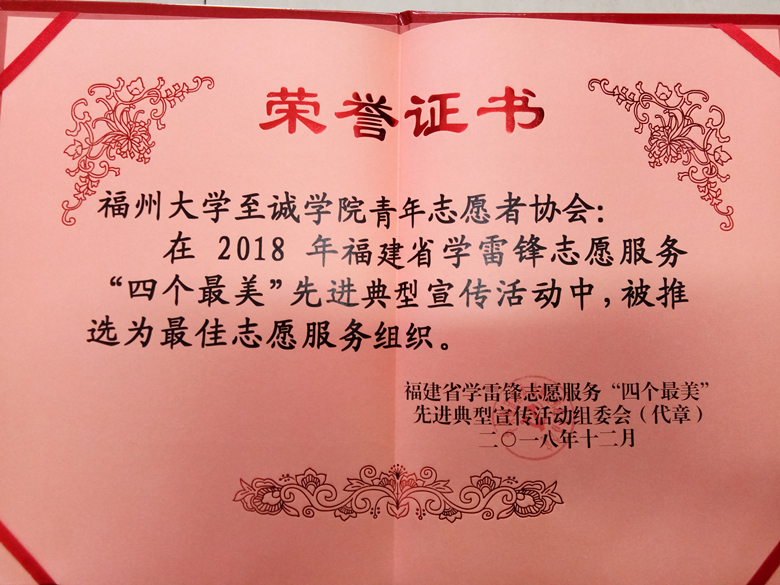 荣誉证书
福州大学至诚学院青年志愿者协会：
在 2018 年福建省学雷锋志愿服务
“四个最美”先进典型宣传活动中，被推
选为最佳志愿服务组织。
福建省学雷锋志愿服务“四个最美”
先进典型宣传活动组委会（代章）
二〇一八年十二月